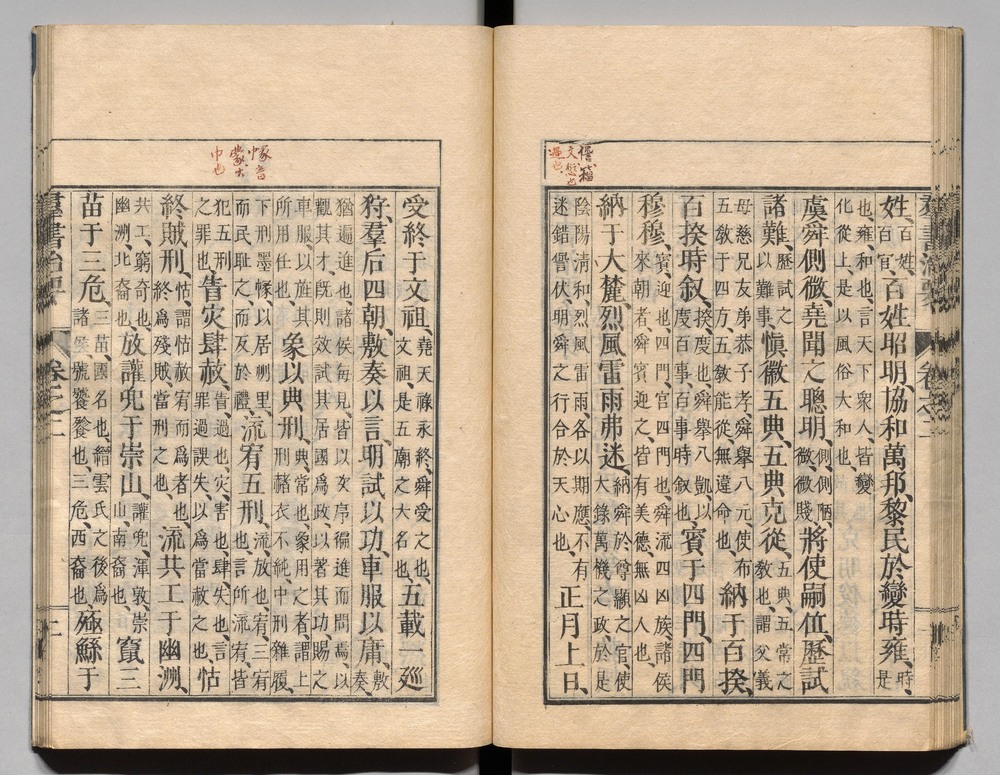 諐、籀
文愆也
過也
姓、百姓、百官、百姓昭明、協和萬邦、黎民於變時雍、時、是
也、雍和也、言天下衆人、皆變化從上、是以風俗大和也、
虞舜側微、堯聞之聰明、側、側陋、微、微賤、將使嗣位、歷試
諸難、歷試之以難事、愼徽五典、五典克從、五典、五常之敎也、謂父義
母慈兄友弟恭子孝、舜舉八元、使布五敎于四方、五敎能從、無違命也、納于百揆、
百揆時叙、揆、度也、舜舉八凱、以度百事、百事時叙也、賓于四門、四門
穆穆、賓、迎也、四門、宮四門也、舜流四凶族、諸侯來朝者、舜賓迎之、皆有美德、無凶人也、
納于大麓、烈風雷雨弗迷、納舜於尊顯之官、使大錄萬機之政、於是
陰陽清和、烈風雷雨、各以期應、不有迷錯諐伏、明舜之行合於天心也、正月上日、
幪音
蒙大
巾也
受終于文祖、堯天祿永終、舜受之也、文祖、是五廟之大名也、五載一廵
狩、羣后四朝、敷奏以言、明試以功、車服以庸、敷奏、
猶遍進也、諸侯每見、皆以次序徧進而問焉、以觀其才、旣則效試其居國爲政、以著其功、賜之
車服以旌其所用任也、象以典刑、典、常也、象用之者、謂上刑赭衣不純、中刑雜屨、
下刑墨幪、以居州里、而民恥之、而反於禮、流宥五刑、流、放也、宥、三宥也、言所流宥、皆
犯五刑之罪也、眚災肆赦、眚、過也、災、害也、肆、失也、言罪過誤失、以爲當赦之也、怙
終賊刑、怙、謂怙赦宥而爲者也、終爲殘賊、當刑之也、流共工于幽洲、
共工、窮奇也、幽洲、北裔也、放讙兜于崇山、讙兜、渾敦、崇山、南裔也、竄三
苗于三危、三苗國名也、縉雲氏之後爲諸侯、號饕餮也、三危、西裔也、殛鯀于
羣書治要 卷之二